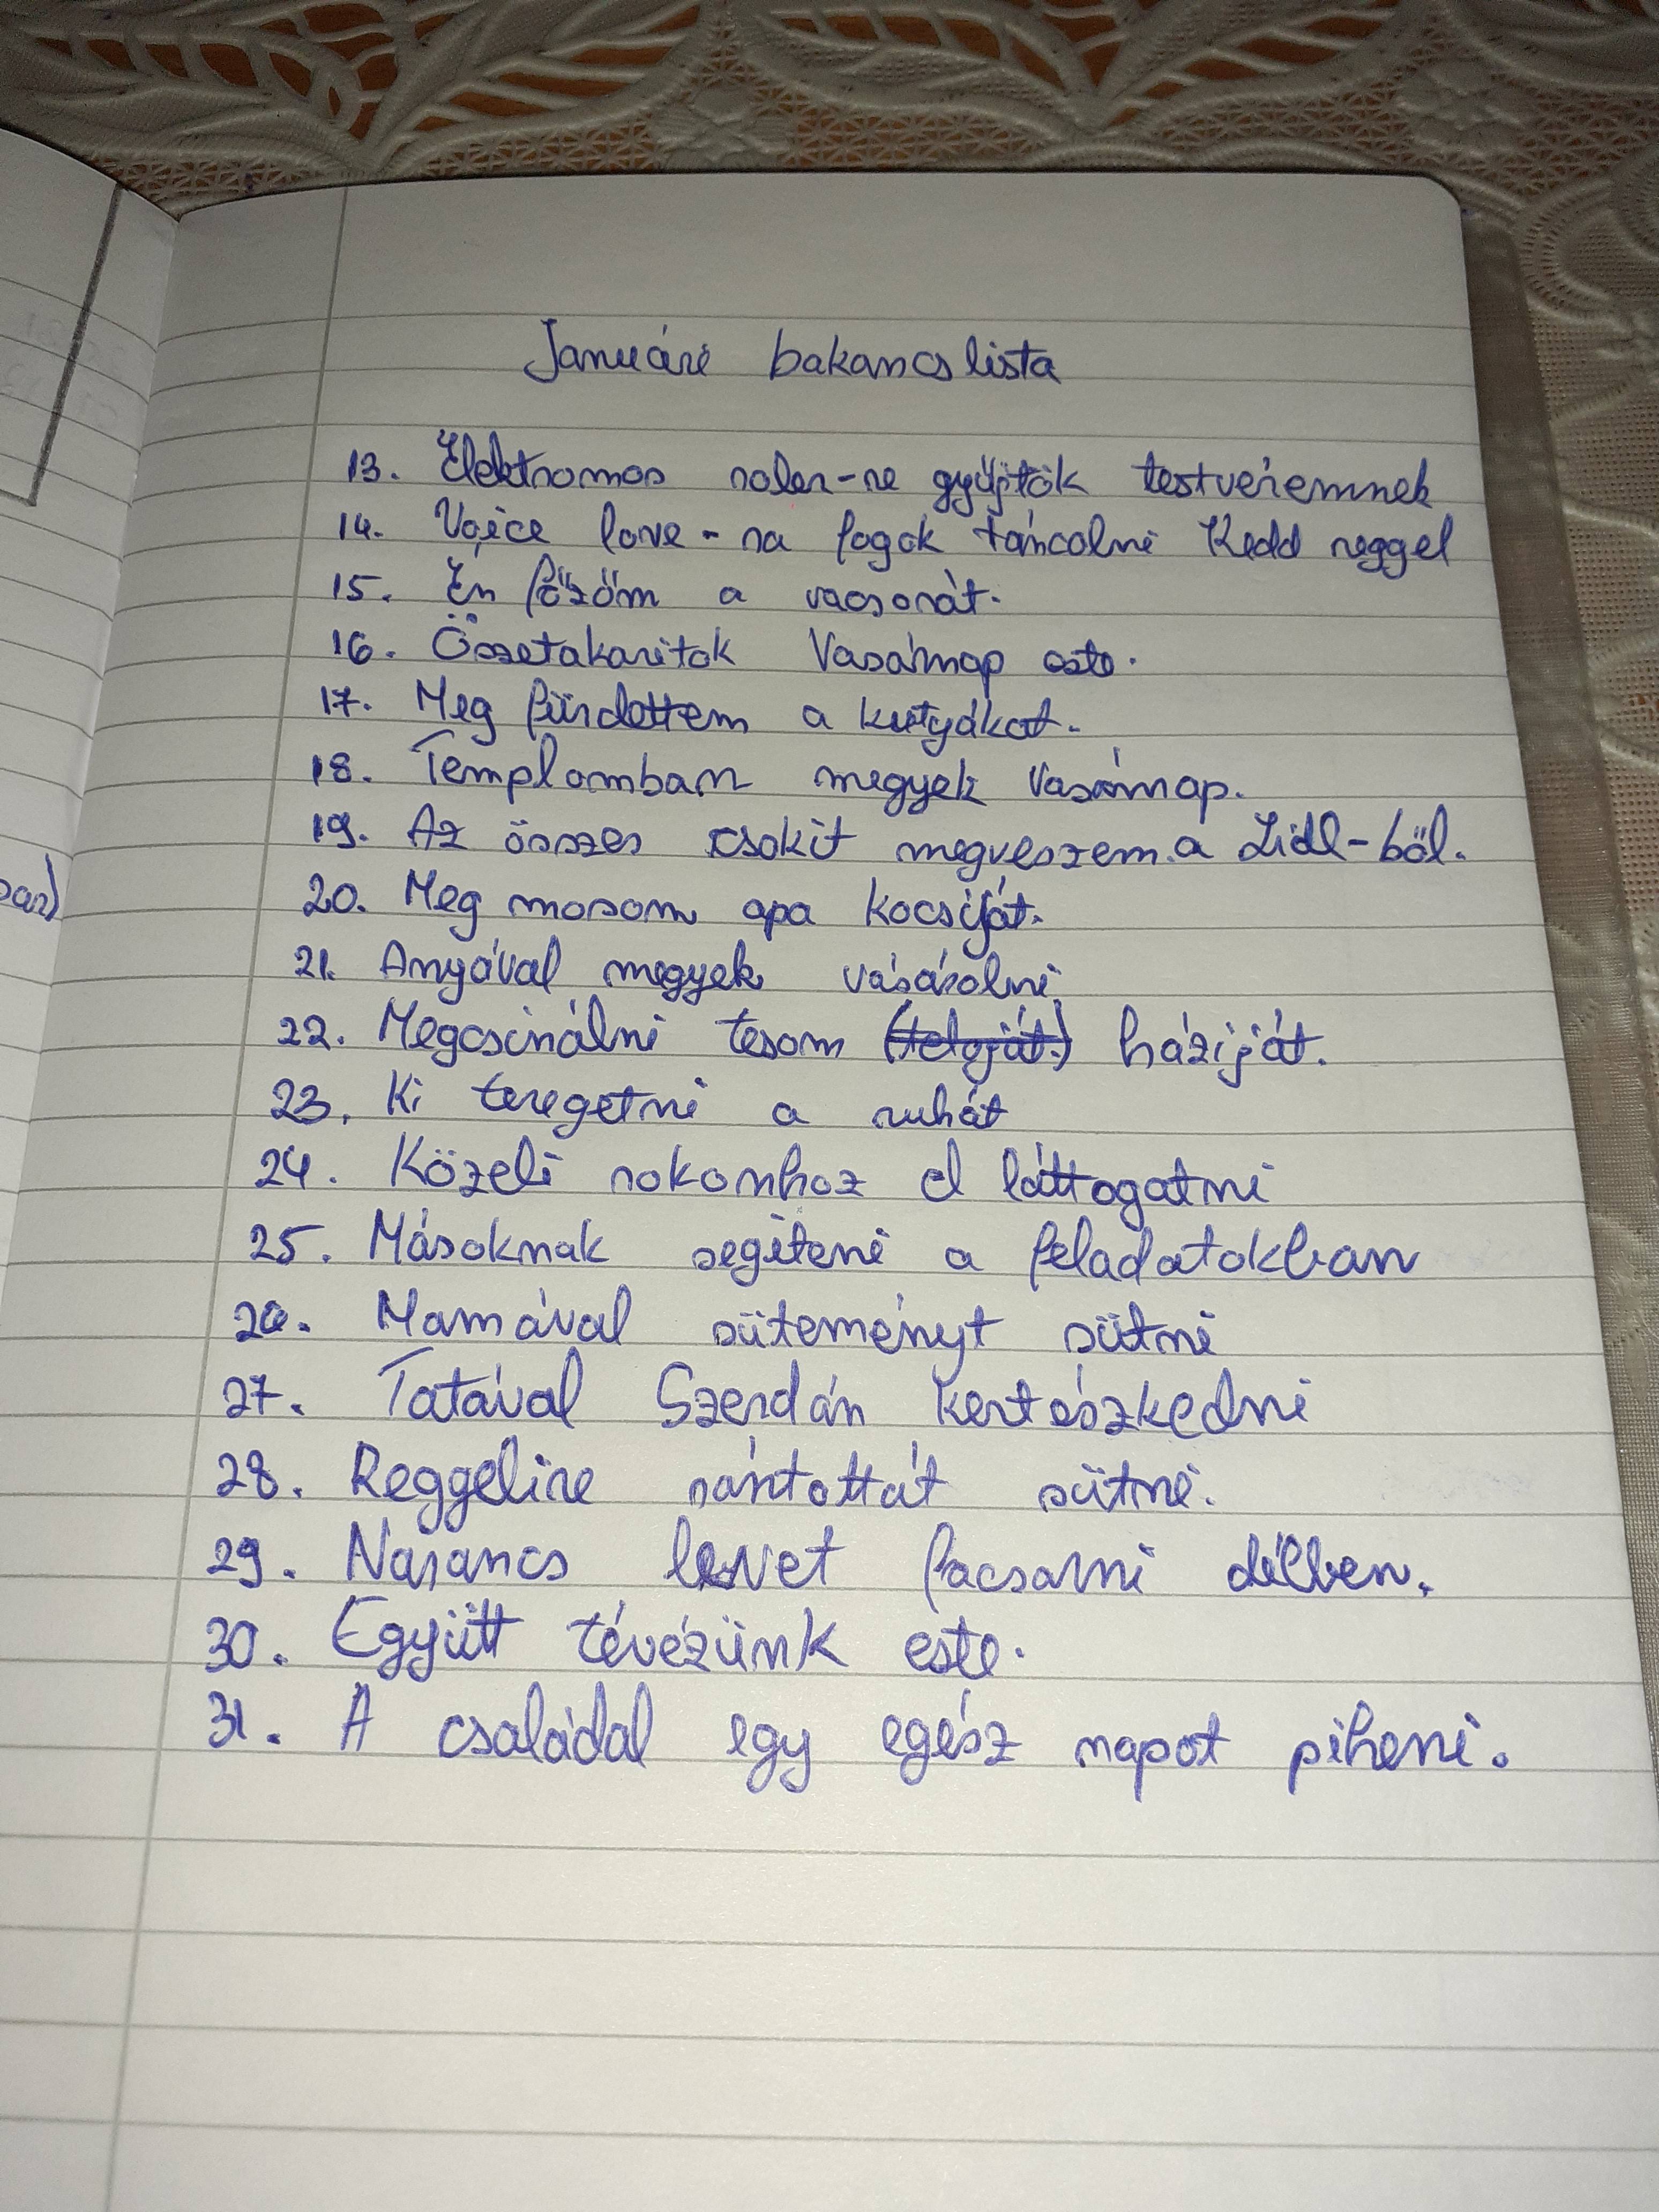 Januári bakancslista
13. Elektromos roler-re gyűjtök testvéremnek
14. Voice love-ra fogok táncolni Kedd reggel
15. Én főzöm a vacsorát.
16. Összetakaritok Vasárnap este.
17. Meg fürdettem a kutyákat.
18. Templomban megyek Vasárnap.
19. Az összes csokit megveszem a Lidl-ből.
20. Meg mosom apa kocsiját.
21. Anyával megyek vásárolni
22. Megcsinálni tesom házíját.
23. Ki teregetni a ruhát
24. Közeli rokonhoz el láttogatni
25. Másoknak segíteni a feladatokban
26. Mamával süteményt sütni
27. Tatával Szerdán kertészkedni
28. Reggelire rántottát sütni.
29. Narancs levet facsarni délben.
30. Együtt tévézünk este.
31. A családal egy egész napot piheni.